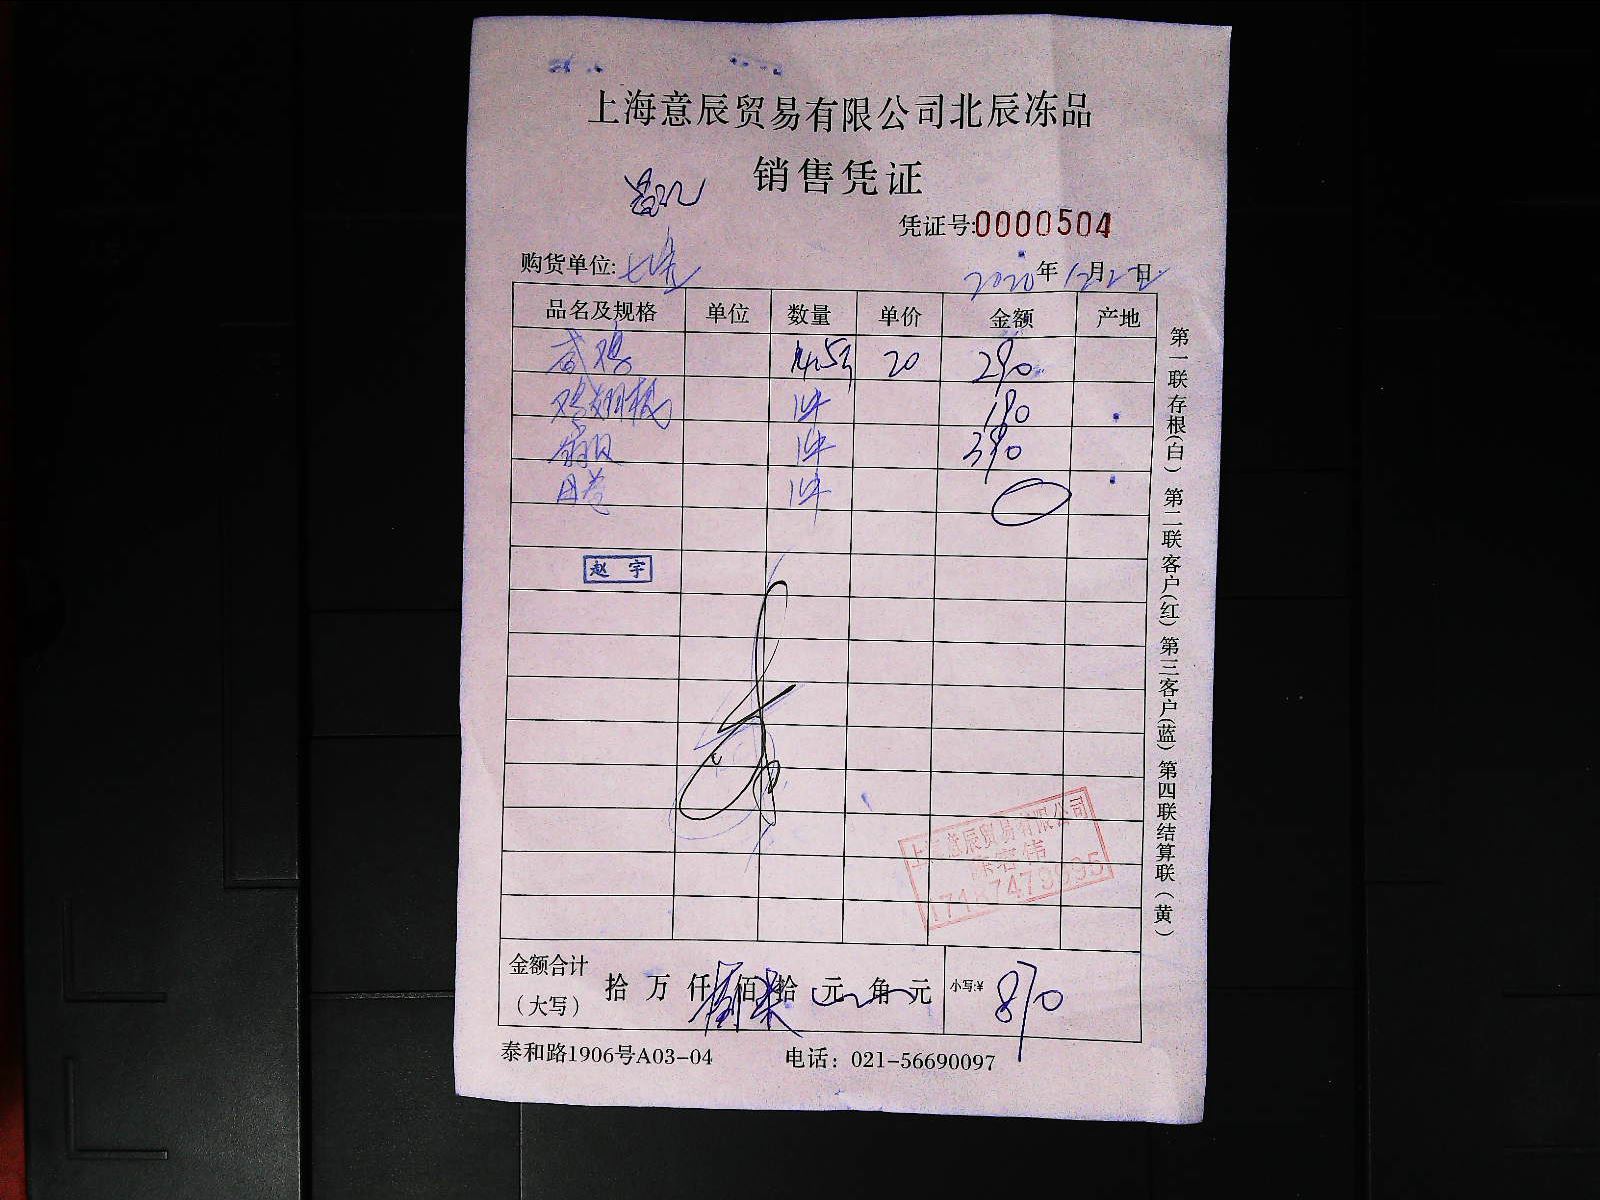 上海意辰贸易有限公司北辰冻品
销售凭证
凭证号:0000504
购货单位:
2020年12月22日
品名及规格 单位 数量 单价 金额 产地
咸鸡 14.5斤 20 290
鸡翅根 1件 190
扇贝 1件 390
1件
赵宇
上海意辰贸易有限公司
金额合计 拾 万 仟 捌佰柒拾 元 角 元 小写:¥ 870
（大写）
泰和路1906号A03-04 电话：021-56690097
第一联存根(白) 第二联客户(红) 第三客户(蓝) 第四联结算联(黄)